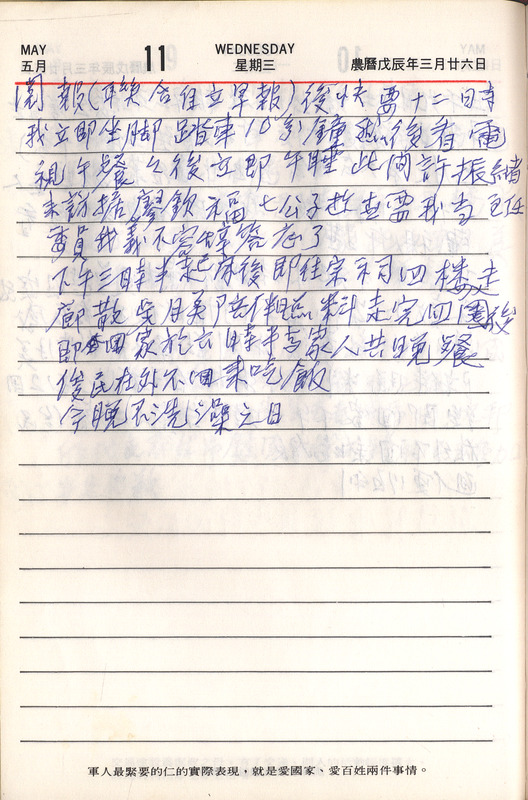 MAY
五月
11
WEDNESDAY
星期三
農曆戊辰年三月廿六日
閱報(聯合自立早報)後快要十二時
我立即坐脚踏車10分鐘然後看電
視午餐之後立即午睡此間許振緒
來訪擔 欽福七公子 要我當主任
委員我義不容辭答応了
下午三時半起床後即往宗祠四樓走
廊散 月英陪伴照料走完四圈後
即回家於六時半与家人共晚餐
俊民在外不回来吃飯
今晚不洗澡之日
軍人最緊要的仁的實際表現，就是愛國家、愛百姓兩件事情。